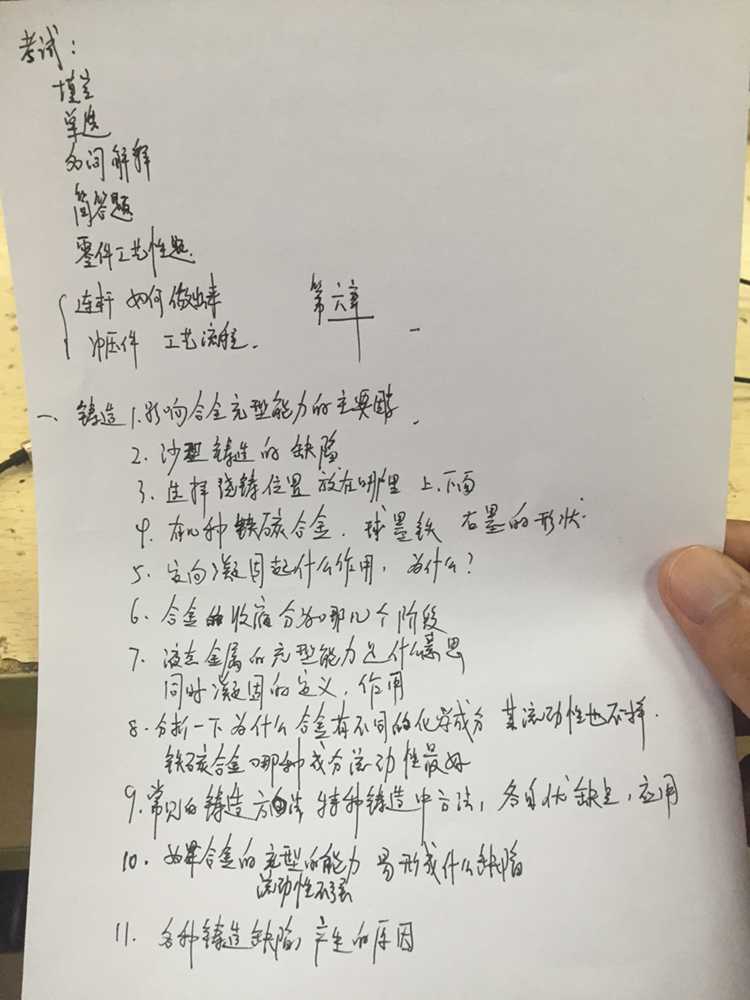 考试：
填空
单选
名词解释
简答题
零件工艺性题.
连杆 如何做出来
第六章
冲压件 工艺流程.
一 铸造 1.影响合金充型能力的主要因素
2. 沙型铸造的缺陷
3. 选择浇铸位置 放在哪里 上.下面
4. 有几种铁碳合金. 球墨铁 石墨的形状.
5. 定向凝固起什么作用, 为什么?
6. 合金的收缩分为哪几个阶段
7. 液态金属的充型能力是什么意思
同时凝固的定义, 作用
8. 分析一下为什么合金有不同的化学成分 其流动性也不一样.
铁碳合金哪种成分流动性最好
9. 常见的铸造方法 特种铸造中方法, 各自优缺点, 应用
10. 如果合金的充型的能力 易形成什么缺陷
流动性不强
11. 各种铸造缺陷产生的原因